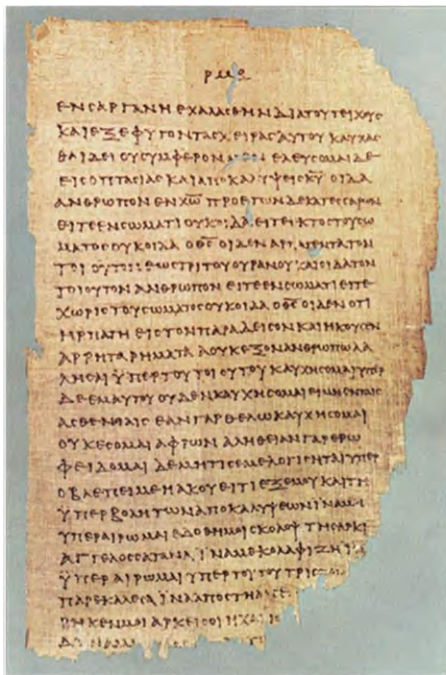 ΡΜΕ
ΕΝ ϹΑΡΓΑΝΗ ΕΧΑΛΑϹΘΗΝ ΔΙΑ ΤΟΥ ΤΕΙΧΟΥϹ
ΚΑΙ ΕΞΕΦΥΓΟΝ ΤΑϹ ΧΕΙΡΑϹ ΑΥΤΟΥ ΚΑΥΧΑϹ
ΘΑΙ ΔΕΙ ΟΥ ϹΥΜΦΕΡΟΝ ΜΕΝ ΕΛΕΥϹΟΜΑΙ ΔΕ
ΕΙϹ ΟΠΤΑϹΙΑϹ ΚΑΙ ΑΠΟΚΑΛΥΨΕΙϹ Κ̅Υ̅ ΟΙΔΑ
ΑΝΘΡΩΠΟΝ ΕΝ Χ̅Ω̅ ΠΡΟ ΕΤΩΝ ΔΕΚΑΤΕϹϹΑΡΩΝ
ΕΙΤΕ ΕΝ ϹΩΜΑΤΙ ΟΥΚ ΟΙΔΑ ΕΙΤΕ ΕΚΤΟϹ ΤΟΥ ϹΩ
ΜΑΤΟϹ ΟΥΚ ΟΙΔΑ Ο Θ̅Ϲ̅ ΟΙΔΕΝ ΑΡΠΑΓΕΝΤΑ ΤΟΝ
ΤΟΙΟΥΤΟΝ ΕΩϹ ΤΡΙΤΟΥ ΟΥΡΑΝΟΥ ΚΑΙ ΟΙΔΑ ΤΟΝ
ΤΟΙΟΥΤΟΝ ΑΝΘΡΩΠΟΝ ΕΙΤΕ ΕΝ ϹΩΜΑΤΙ ΕΙΤΕ
ΧΩΡΙϹ ΤΟΥ ϹΩΜΑΤΟϹ ΟΥΚ ΟΙΔΑ Ο Θ̅Ϲ̅ ΟΙΔΕΝ ΟΤΙ
ΗΡΠΑΓΗ ΕΙϹ ΤΟΝ ΠΑΡΑΔΕΙϹΟΝ ΚΑΙ ΗΚΟΥϹΕΝ
ΑΡΡΗΤΑ ΡΗΜΑΤΑ Α ΟΥΚ ΕΞΟΝ ΑΝΘΡΩΠΩ ΛΑ
ΛΗϹΑΙ ΫΠΕΡ ΤΟΥ ΤΟΙΟΥΤΟΥ ΚΑΥΧΗϹΟΜΑΙ ΥΠΕΡ
ΔΕ ΕΜΑΥΤΟΥ ΟΥΔΕΝ ΚΑΥΧΗϹΟΜΑΙ ΕΙ ΜΗ ΕΝ ΤΑΙϹ
ΑϹΘΕΝΕΙΑΙϹ ΕΑΝ ΓΑΡ ΘΕΛΩ ΚΑΥΧΗϹΟΜΑΙ
ΟΥΚ ΕϹΟΜΑΙ ΑΦΡΩΝ ΑΛΗΘΕΙΑΝ ΓΑΡ ΕΡΩ
ΦΕΙΔΟΜΑΙ ΔΕ ΜΗ ΤΙϹ ΕΜΕ ΛΟΓΙϹΗΤΑΙ ΥΠΕΡ
Ο ΒΛΕΠΕΙ ΜΕ Η ΑΚΟΥΕΙ ΤΙ ΕΞ ΕΜΟΥ ΚΑΙ ΤΗ
ΫΠΕΡΒΟΛΗ ΤΩΝ ΑΠΟΚΑΛΥΨΕΩΝ ΪΝΑ ΜΗ
ΥΠΕΡΑΙΡΩΜΑΙ ΕΔΟΘΗ ΜΟΙ ϹΚΟΛΟΨ ΤΗ ϹΑΡΚΙ
ΑΓΓΕΛΟϹ ϹΑΤΑΝΑ ΪΝΑ ΜΕ ΚΟΛΑΦΙΖΗ ΪΝΑ
ΫΠΕΡΑΙΡΩΜΑΙ ΥΠΕΡ ΤΟΥΤΟΥ ΤΡΙϹ
ΠΑΡΕΚΑΛΕϹΑ ΪΝΑ ΑΠΟϹΤΗ
ΚΕΝ ΜΟΙ ΑΡΚΕΙ ϹΟΙ Η ΧΑΡΙϹ